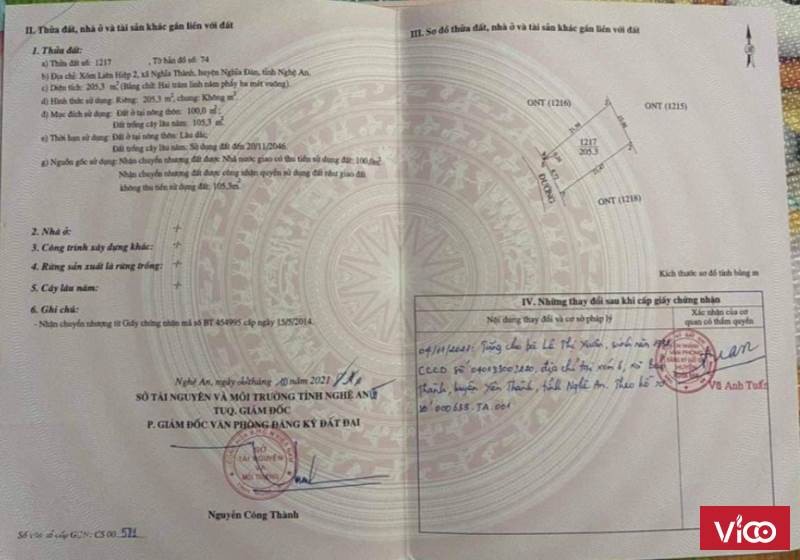 II. Thửa đất, nhà ở và tài sản khác gắn liền với đất
1. Thửa đất:
a) Thửa đất số: 1217 , Tờ bản đồ số: 74
b) Địa chỉ: Xóm Liên Hiệp 2, xã Nghĩa Thành, huyện Nghĩa Đàn, tỉnh Nghệ An.
c) Diện tích: 205,3 m² (Bằng chữ: Hai trăm linh năm phẩy ba mét vuông).
d) Hình thức sử dụng: Riêng: 205,3 m², chung: Không m².
đ) Mục đích sử dụng: Đất ở tại nông thôn: 100,0 m²;
Đất trồng cây lâu năm: 105,3 m².
e) Thời hạn sử dụng: Đất ở tại nông thôn: Lâu dài;
Đất trồng cây lâu năm: Sử dụng đất đến 20/11/2046.
g) Nguồn gốc sử dụng: Nhận chuyển nhượng đất được Nhà nước giao có thu tiền sử dụng đất: 100,0m²
Nhận chuyển nhượng đất được công nhận quyền sử dụng đất như giao đất
không thu tiền sử dụng đất: 105,3m²
2. Nhà ở:
3. Công trình xây dựng khác:
4. Rừng sản xuất là rừng trồng:
5. Cây lâu năm:
6. Ghi chú:
- Nhận chuyển nhượng từ Giấy chứng nhận mã số BT 454995 cấp ngày 15/5/2014.
Nghệ An, ngày tháng 10 năm 2021
SỞ TÀI NGUYÊN VÀ MÔI TRƯỜNG TỈNH NGHỆ AN
TUQ. GIÁM ĐỐC
P. GIÁM ĐỐC VĂN PHÒNG ĐĂNG KÝ ĐẤT ĐAI
SỞ
TÀI NGUYÊN
VÀ
MÔI TRƯỜNG
Nguyễn Công Thành
Số vào sổ cấp GCN: CS 00 571
III. Sơ đồ thửa đất, nhà ở và tài sản khác gắn liền với đất
ONT (1216)
ONT (1215)
1217
205.3
ĐƯỜNG
ONT (1218)
Kích thước sơ đồ tính bằng m
IV. Những thay đổi sau khi cấp giấy chứng nhận
Nội dung thay đổi và cơ sở pháp lý
Xác nhận của cơ
quan có thẩm quyền
04/11/2021: Tặng cho bà Lê Thị Xuân, sinh năm
CCCD số địa chỉ tại xóm 6, xã
Thành, huyện Yên Thành, tỉnh Nghệ An. Theo hồ sơ
số 000688.TA.001
Võ Anh Tuấn
VICO